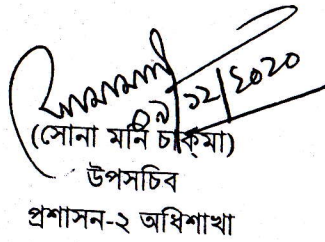 ০৯/১২/২০২০
(সোনা মনি চাক্‌মা)
উপসচিব
প্রশাসন-২ অধিশাখা